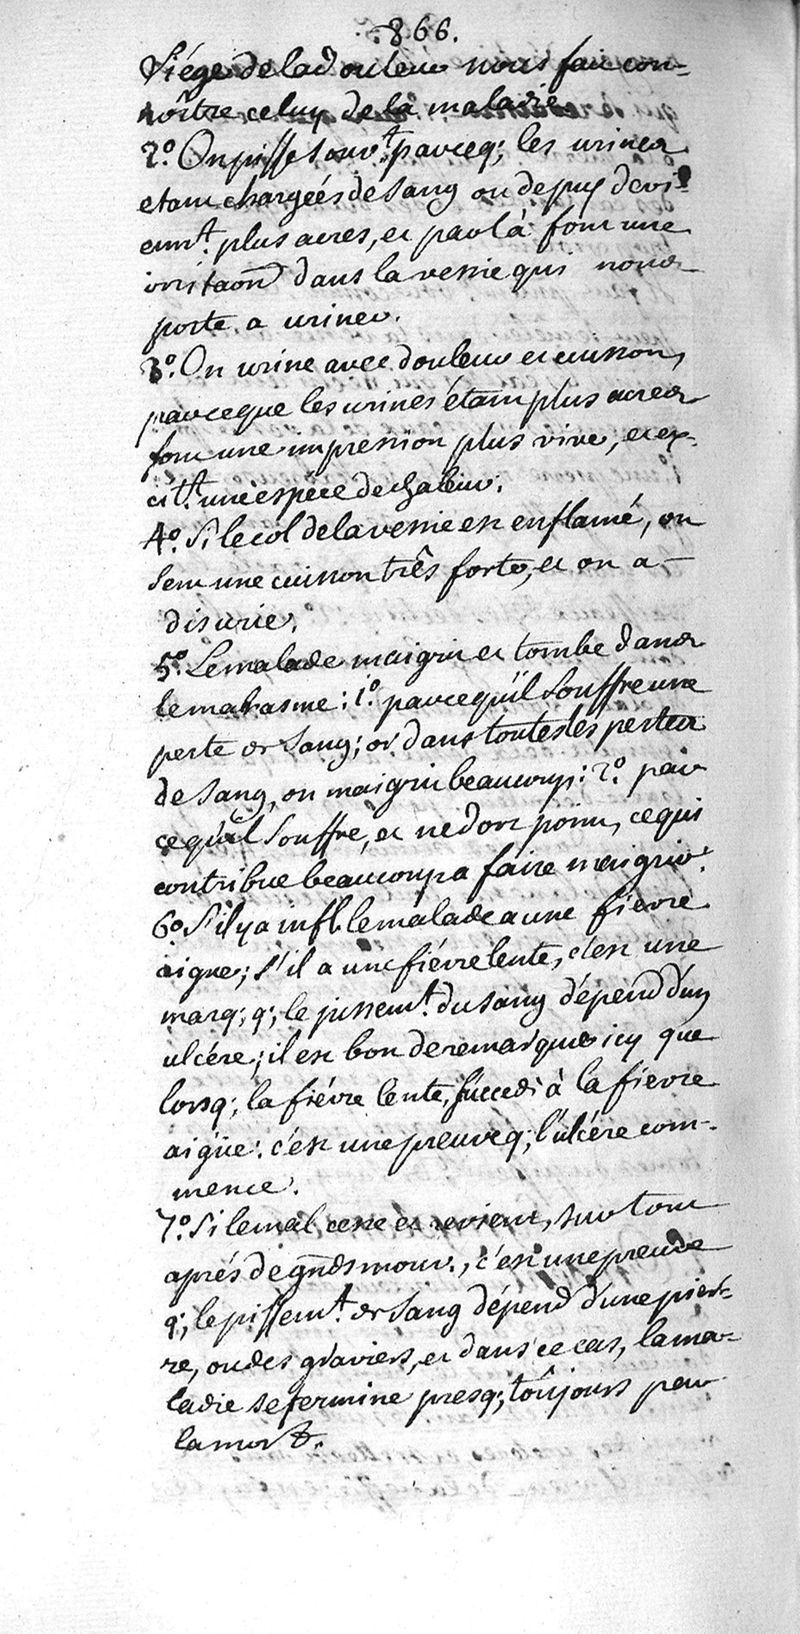 .866.
siége de la douleur nous fait con-
noître celuy de la maladie
2.° On pisse souv.t parceq; les urines
etant chargées de sang ou de pus devi-
enn.t plus acres, et par là font une
irritaon dans la vessie qui nous
porte a uriner.
3.° On urine avec douleur et cuisson,
parceque les urines étant plus acres
font une impression plus vive, et ex-
cit.t une espéce de chaleur.
4.° Si le col de la vessie est enflamé, on
sent une cuisson três forte, et on a
disurie.
5.° Le malade maigrit et tombe dans
le marasme: 1.° parcequ'il souffre une
perte de sang; or dans toutes les pertes
de sang, on maigrit beaucoup: 2.° par
cequ'il souffre, et ne dort point, ce qui
contribue beaucoup a faire maigrir.
6.° S'il y a infl. le malade a une fiévre
aigue; s'il a une fiévre lente, c'est une
marq; q; le pissem.t du sang dépend d'un
ulcére; il est bon de remarquer icy que
lorsq; la fiévre lente, succede à la fiévre
aigüe: c'est une preuve q; l'ulcére com-
mence.
7.° Si le mal cesse et revient, sur tout
aprés de gnds mouv., c'est une preuve
q; le pissem.t de sang dépend d'une pier-
re, ou des graviers, et dans ce cas, la ma-
ladie se termine presq; toûjours par
la mort.